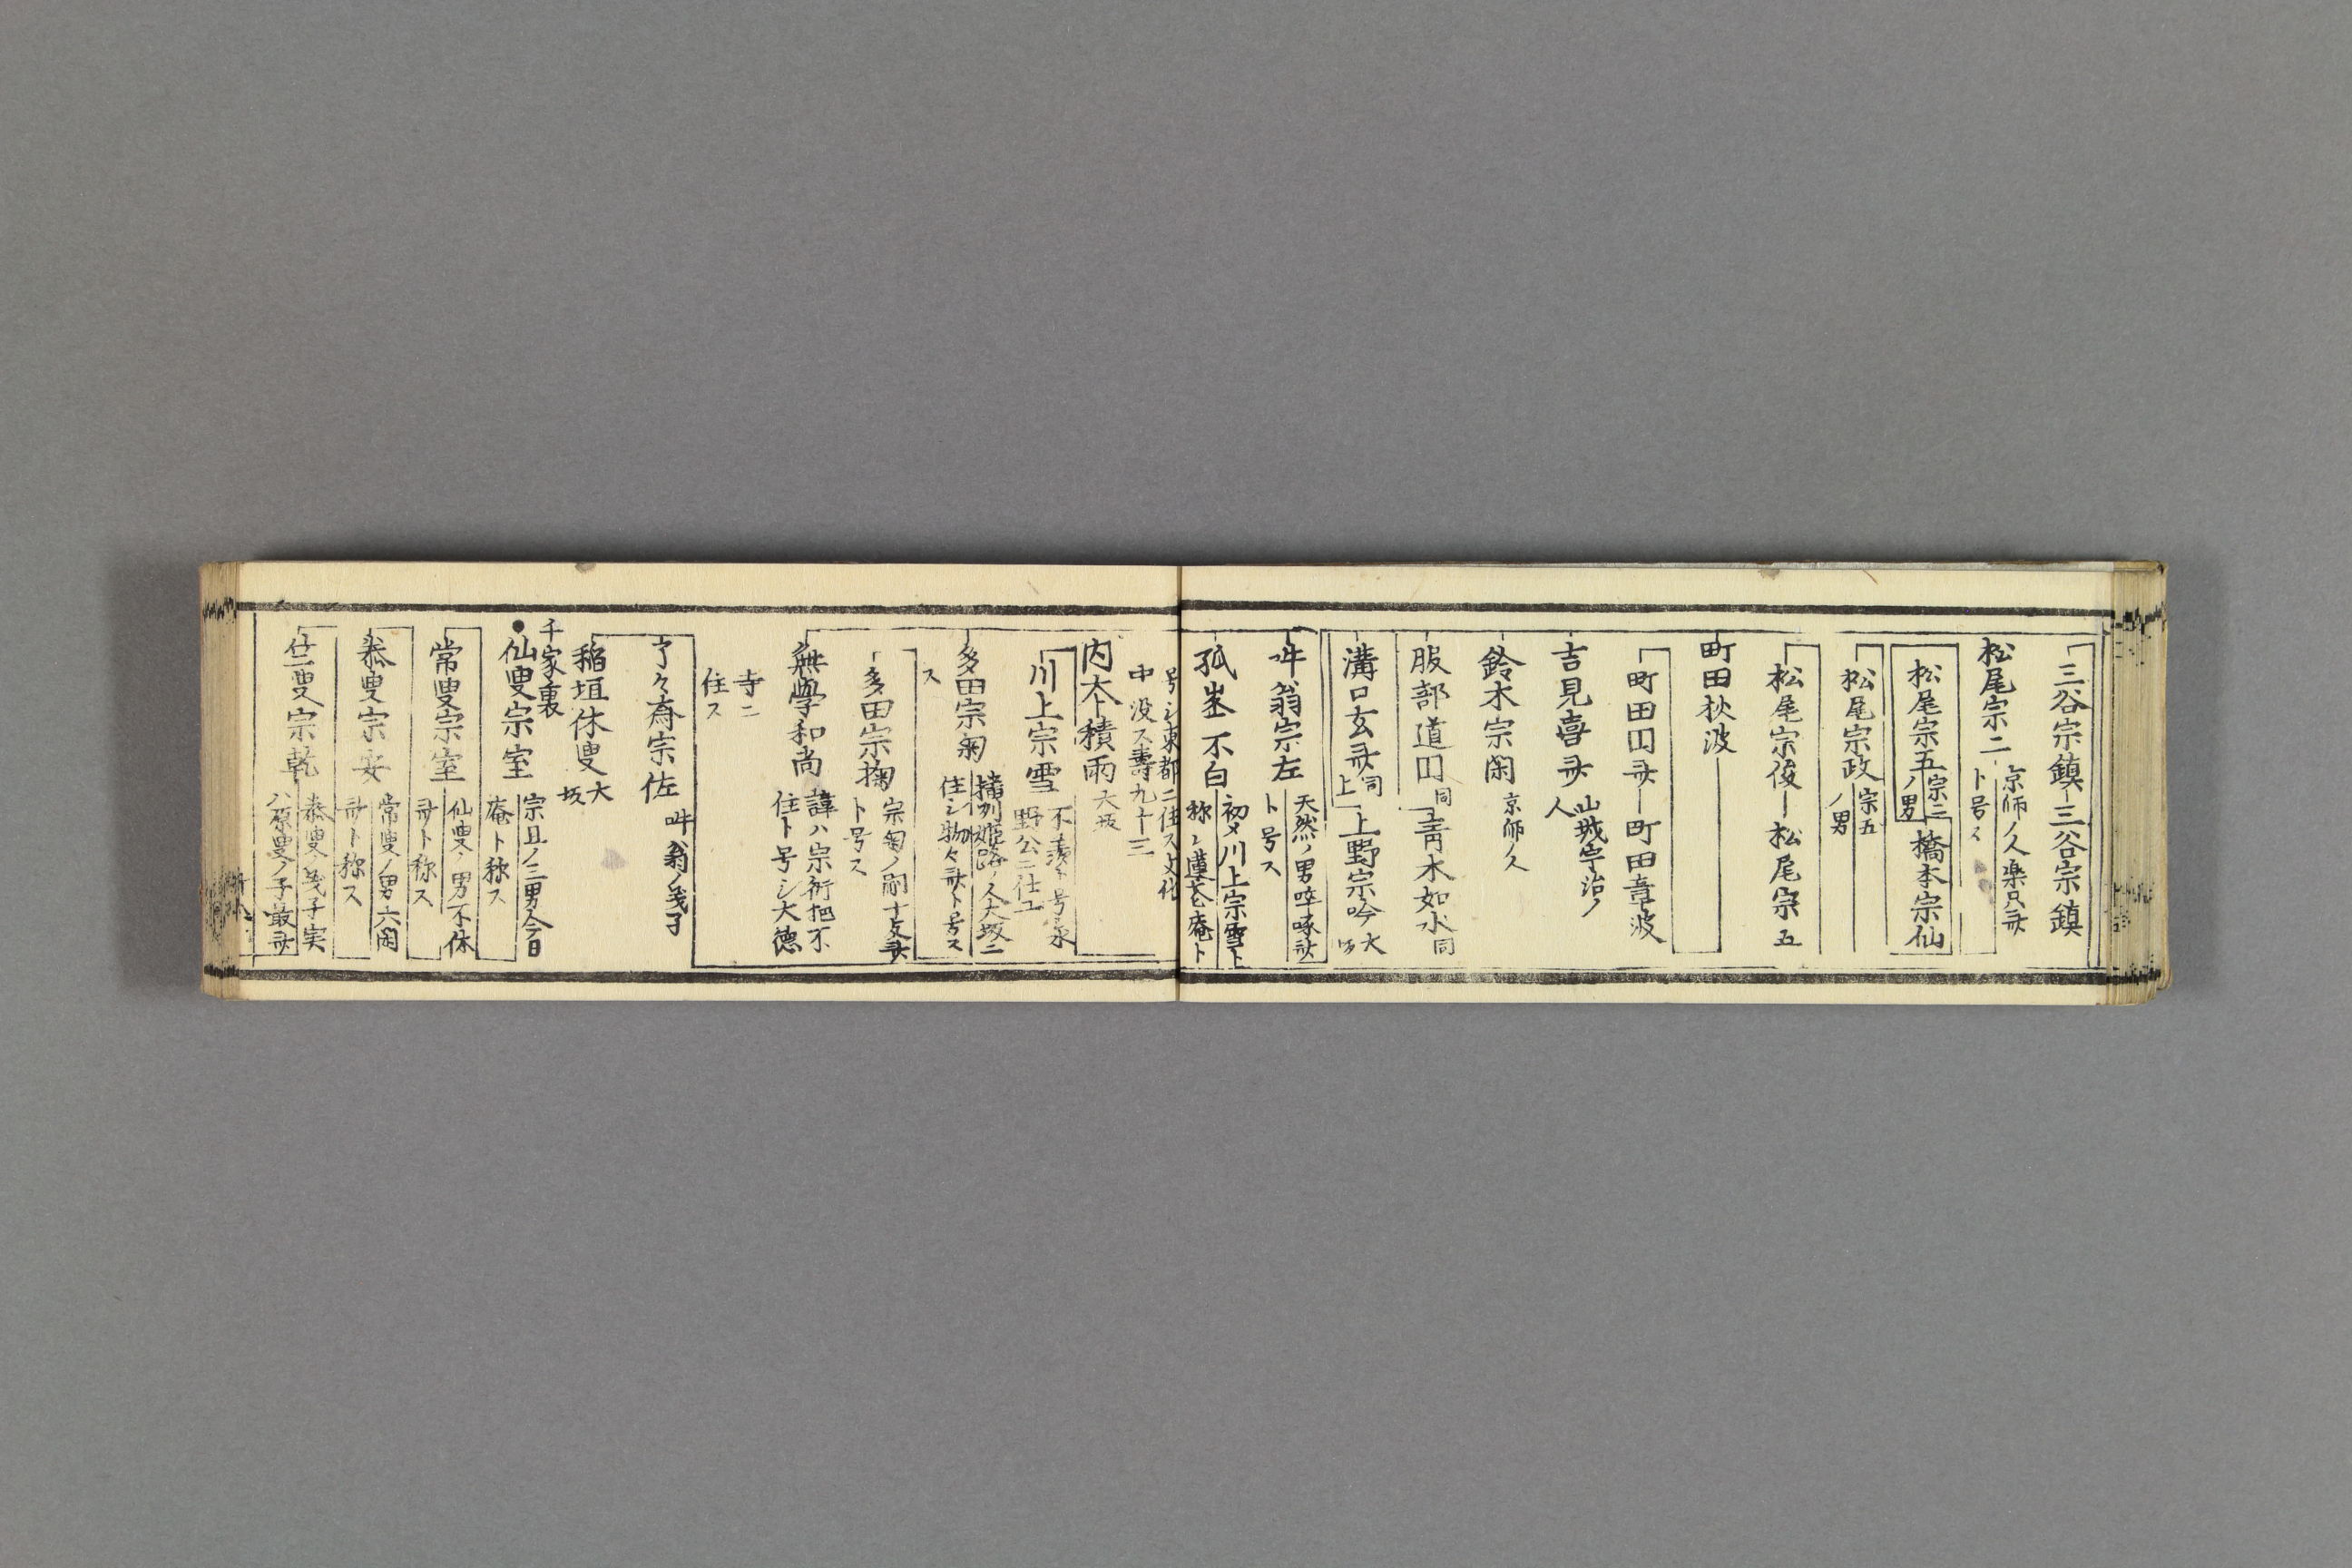 三谷宗鎮 三谷宗鎮
松尾宗二 京師ノ人楽只斎
ト号ス
松尾宗五 宗二
ノ男
橋本宗仙
松尾宗政 宗五
ノ男
松尾宗俊 松尾宗五
町田秋波
町田囗斎 町田章波
吉見喜斎 山城宇治ノ
人
鈴木宗閑 京師ノ人
服部道囗 同
青木如水 同
溝口玄斎 同
上
上野宗吟 大
坂
啐翁宗左 天然ノ男啐啄斎
ト号ス
孤峯不白 初メ川上宗雪ト
称シ蓮花庵ト
号シ東都ニ住ス文化
中没ス壽九十三
内本積雨 大坂
川上宗雪 不湊ト号永
野公ニ仕ユ
多田宗菊 播州姫路ノ人大坂ニ
住シ物々斎ト号ス
ス
多田宗掬 宗菊ノ嗣
ト号ス
無學和尚 諱ハ宗衍把不
住ト号シ大德
寺ニ
住ス
了々斎宗佐 啐翁ノ義子
稲垣休叟 大
坂
千家裏
●仙叟宗室 宗旦ノ三男今日
庵ト称ス
常叟宗室 仙叟ノ男不休
斎ト称ス
泰叟宗安 常叟ノ男六閑
斎ト称ス
竺叟宗乾 泰叟ノ義子実
ハ原叟ノ子最斎